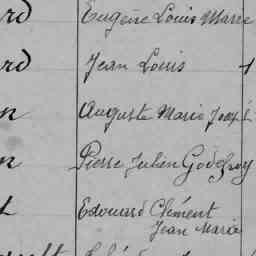 rd Eugène Louis Marie
rd Jean Louis 1
n Auguste Marie Josèf
n Pierre Julien Godefroy
t Edouard Clément
Jean Marie